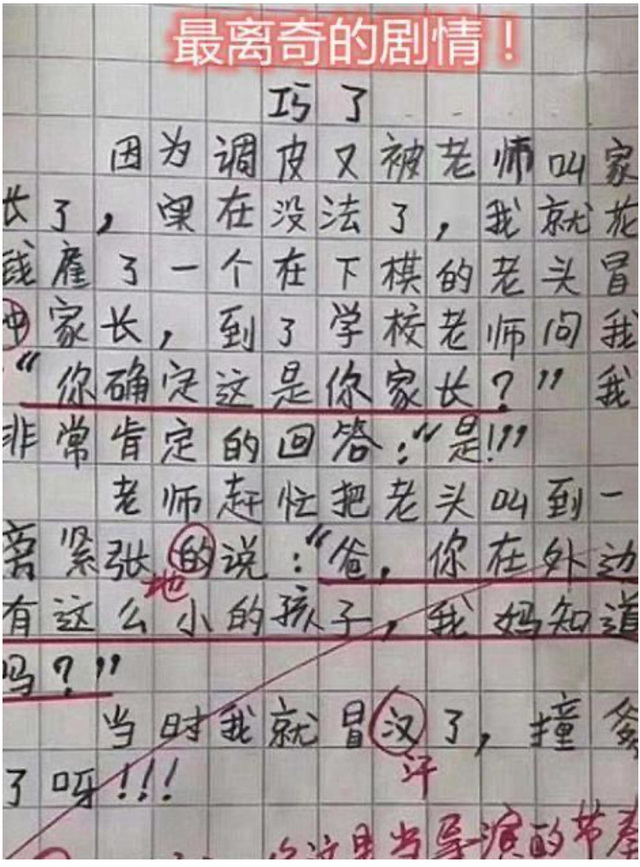 最离奇的剧情!
巧了
因为调皮又被老师叫家
长了,实在没法了,我就花
钱雇了一个在下棋的老头冒
冲家长,到了学校老师问我
“你确定这是你家长?”我
非常肯定的回答:“是!”
老师赶忙把老头叫到一
旁紧张的说:“爸,你在外边
地
有这么小的孩子,我妈知道
吗?”
当时我就冒汉了,撞爹
汗
了呀!!!
你这是当导演的节奏